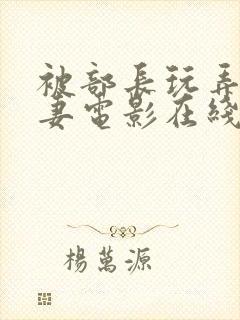 被部長玩弄
妻電影在綫
楊萬源